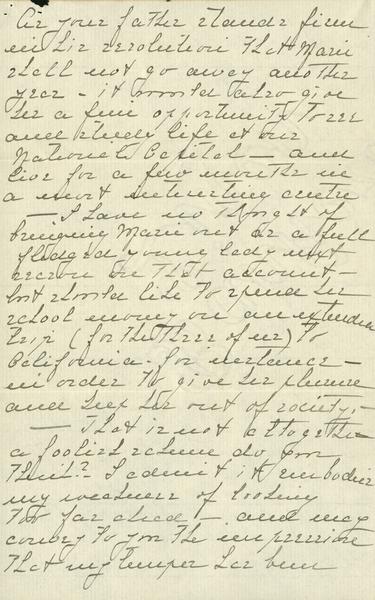 As your father stands firm
in his resolution that Marie
shall not go away another
year - it would also give
her a fine opportunity to see
and study life at our
National Capital - and
live for a few months in
a most interesting centre
- I have no thought of
bringing Marie out as a full
fledged young lady next
season on that account -
but should like to spend her
school money on an extended
trip (for the three of us) to
California - for instance -
in order to give her pleasure
and keep her out of society, -
- That is not altogether
a foolish scheme do you
think? - I admit it embodies
my weakness of looking
too far ahead - and may
convey to you the impression
that my temper has been